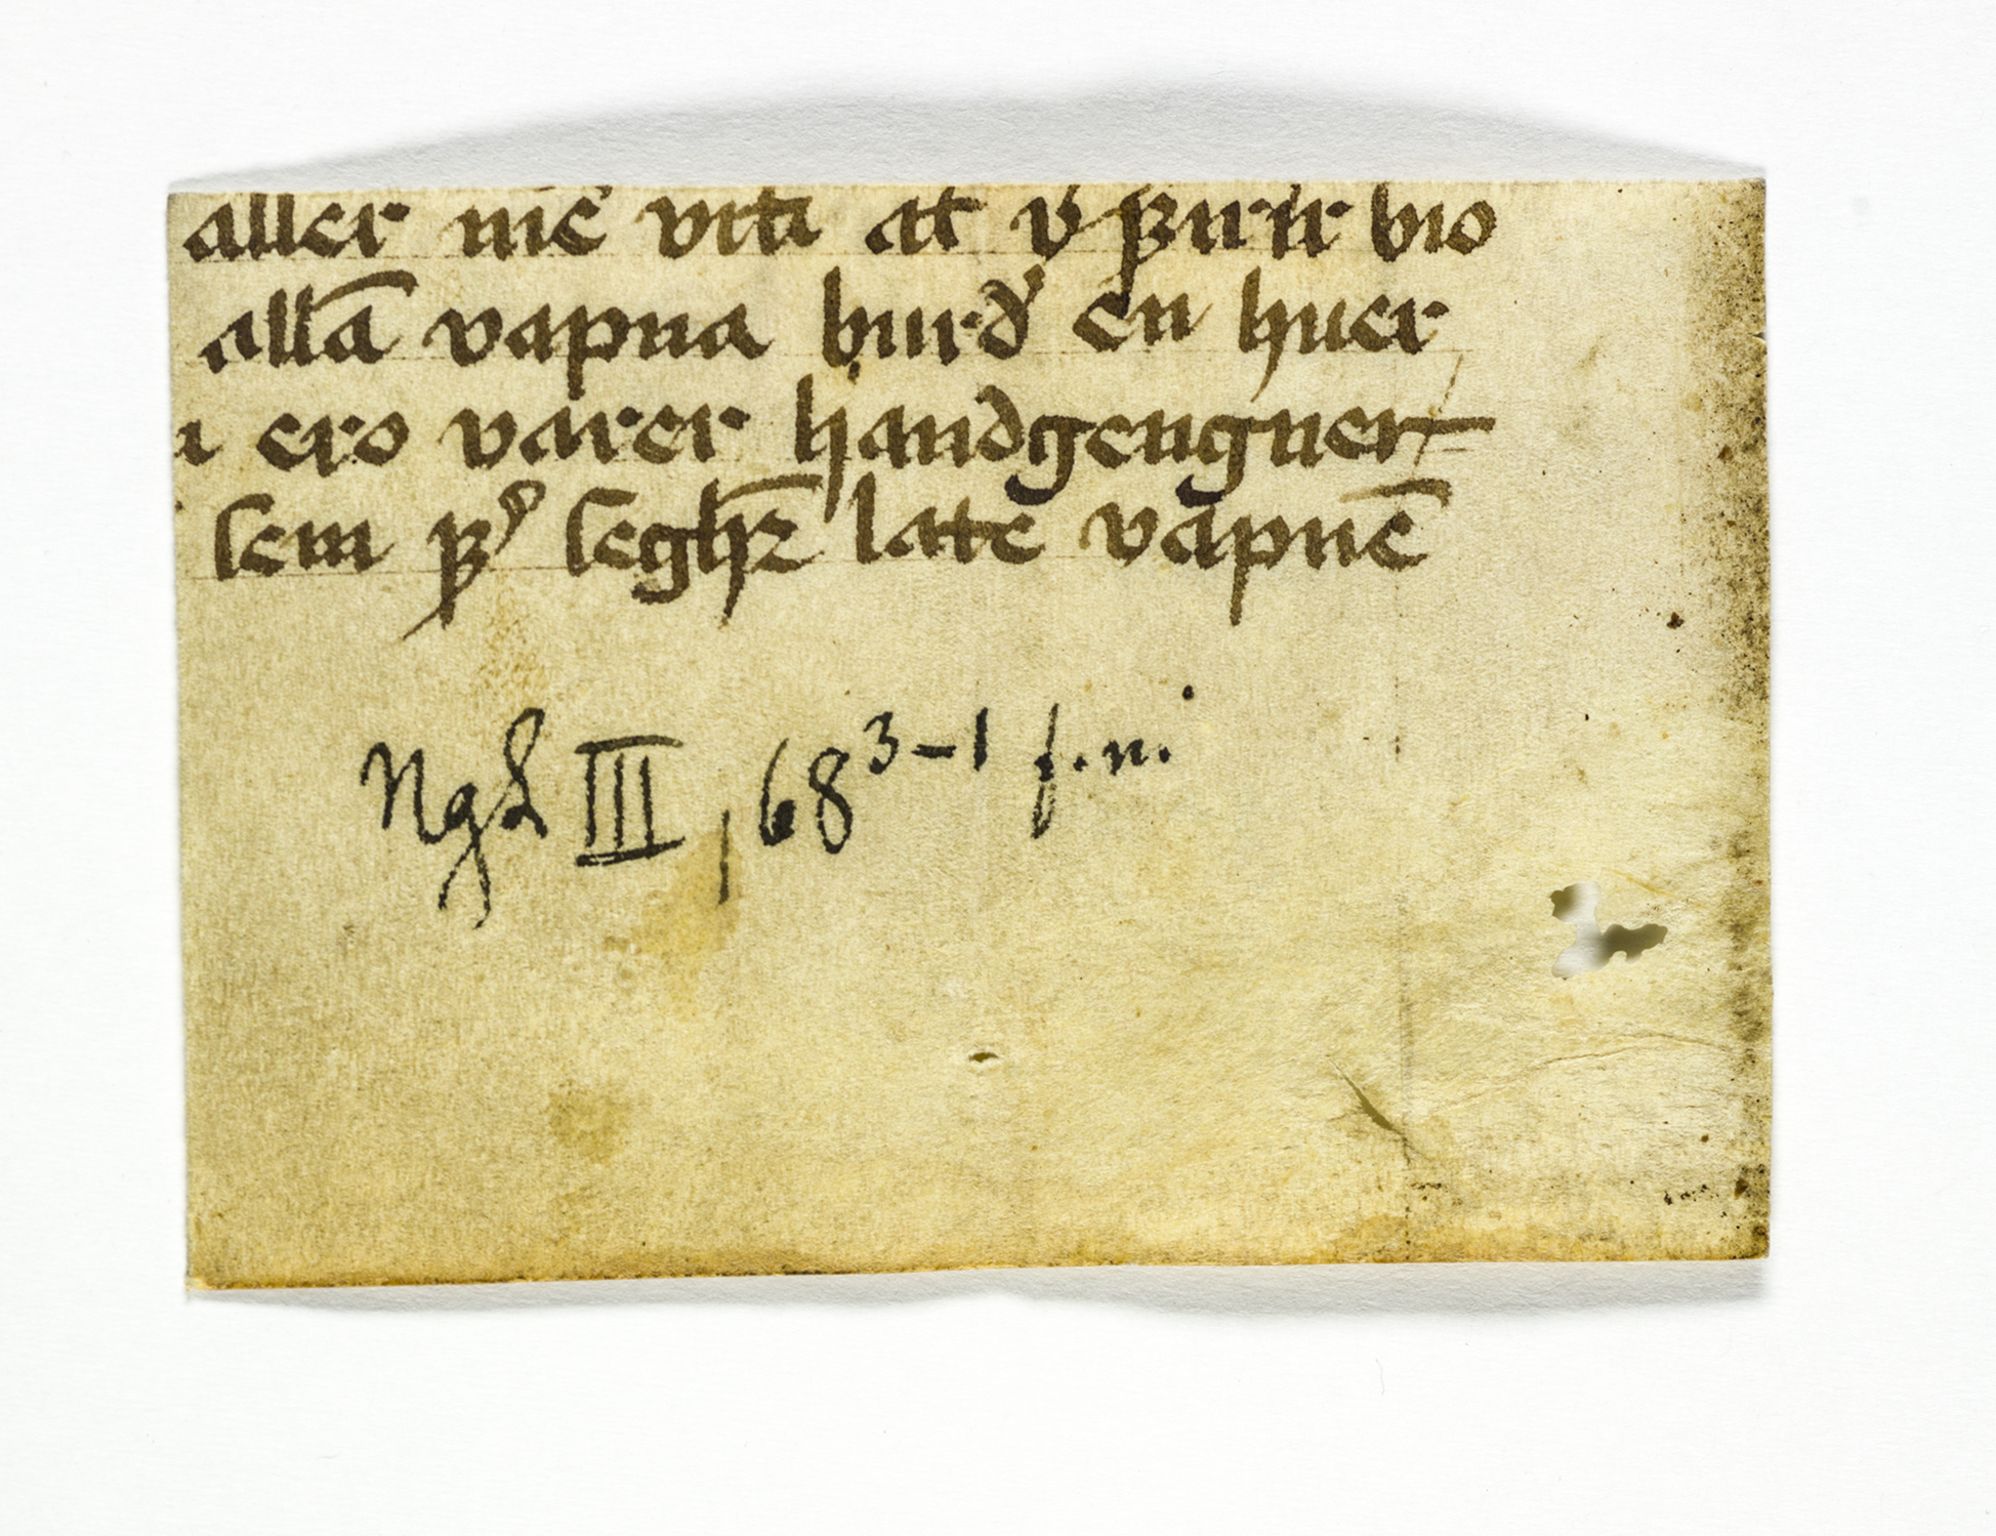 aller me̅ vita at v̓ ꝼirir bio
alla̅ vapna burd̓ en huer
a ero varer handgengner
sem ꝩ̓ seghꝫ late vapne̅
NgL III, 68³⁻¹ f.n.